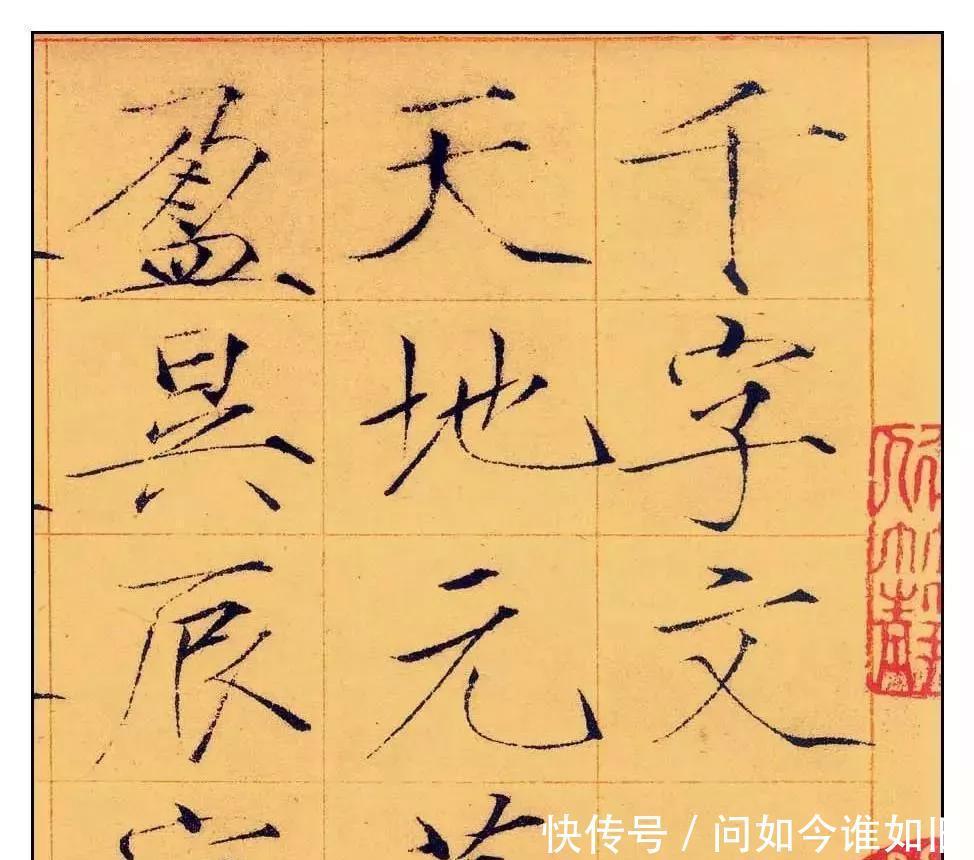 千字文
天地元
盈昃辰
快传号 / 问如今谁如旧